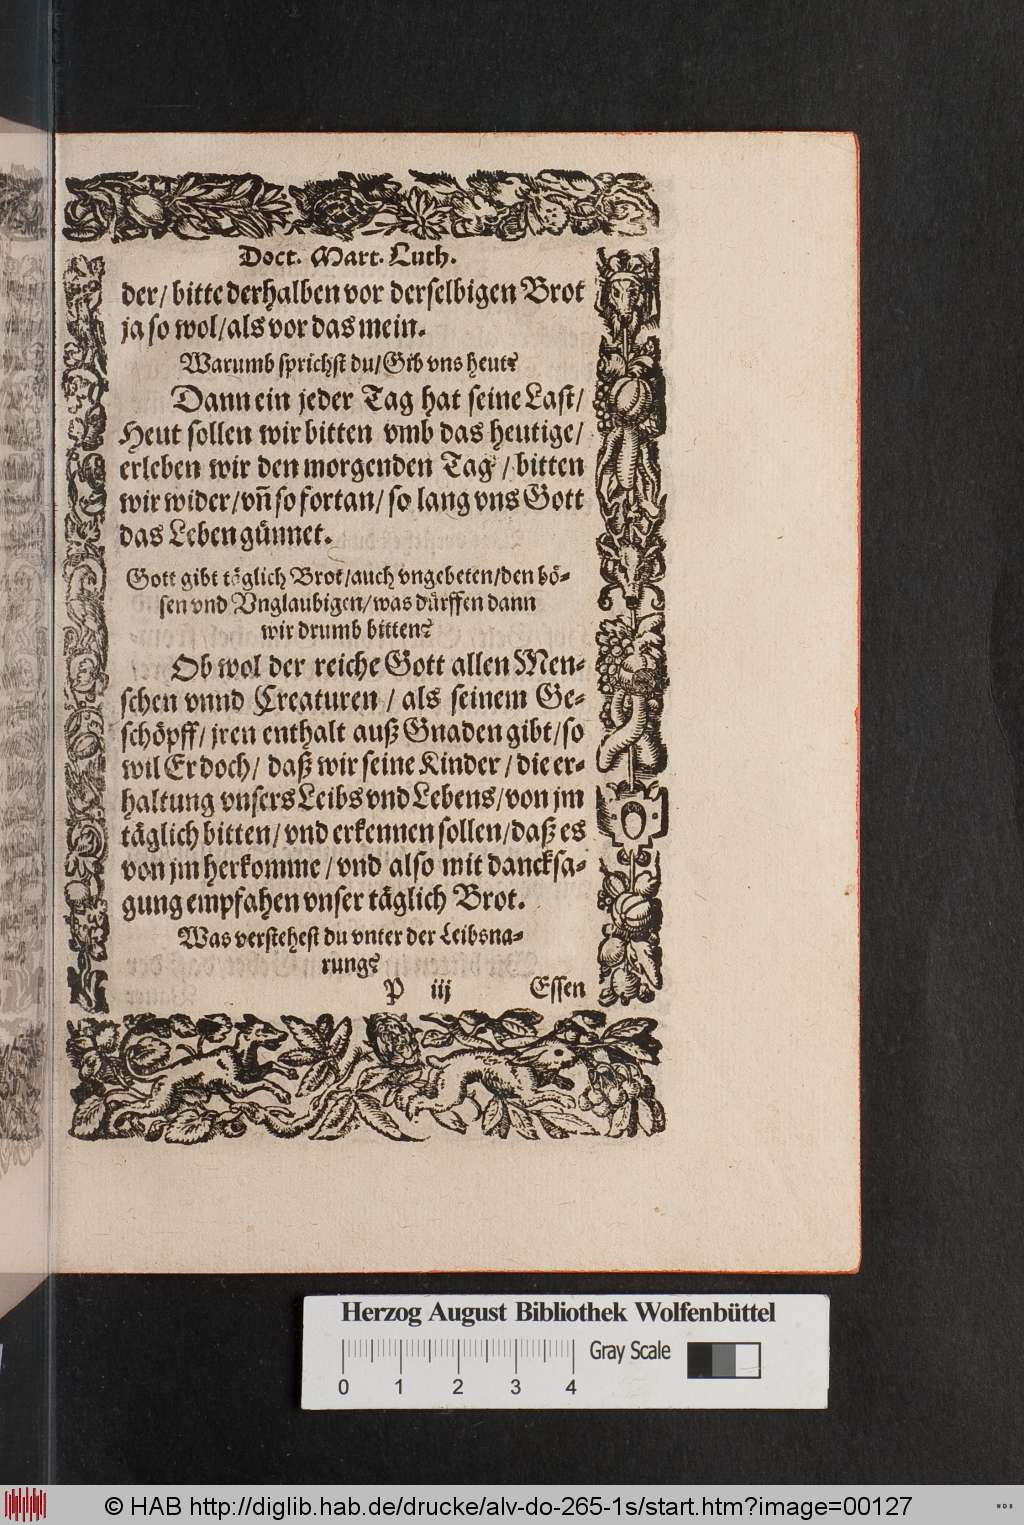 Doct. Mart. Luth.
der/ bitte derhalben vor derselbigen Brot
ja so wol/als vor das mein.
Warumb sprichst du/Gib vns heut?
Dann ein jeder Tag hat seine Last/
Heut sollen wir bitten vmb das heutige/
erleben wir den morgenden Tag/ bitten
wir wider/vñ so fortan/ so lang vns Gott
das Leben günnet.
Gott gibt täglich Brot/auch vngebeten/den bö-
sen vnd Vnglaubigen/was dürffen dann
wir drumb bitten?
Ob wol der reiche Gott allen Men-
schen vnnd Creaturen/ als seinem Ge-
schöpff/ jren enthalt auß Gnaden gibt/so
wil Er doch/ daß wir seine Kinder/ die er-
haltung vnsers Leibs vnd Lebens/von jm
täglich bitten/ vnd erkennen sollen/daß es
von jm herkomme/ vnd also mit dancksa-
gung empfahen vnser täglich Brot.
Was verstehest du vnter der Leibsna-
rung?
P iij Essen
Herzog August Bibliothek Wolfenbüttel
Gray Scale
0 1 2 3 4
© HAB http://diglib.hab.de/drucke/alv-do-265-1s/start.htm?image=00127